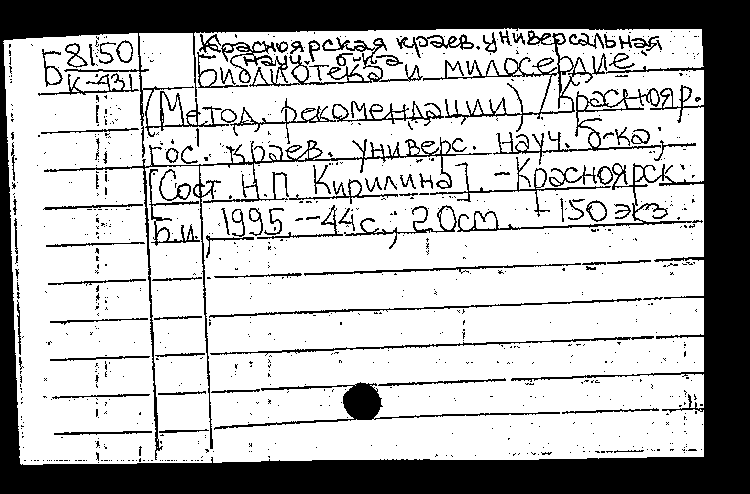 Б 8150
К-431
Красноярская краев. универсальная
науч. б-ка
Библиотека и милосердие.
(Метод. рекомендации) / Краснояр.
гос. краев. универс. науч. б-ка;
[Сост. Н.П. Кирилина]. - Красноярск:
Б.и., 1995. - 44с.; 20см. - 150 экз.